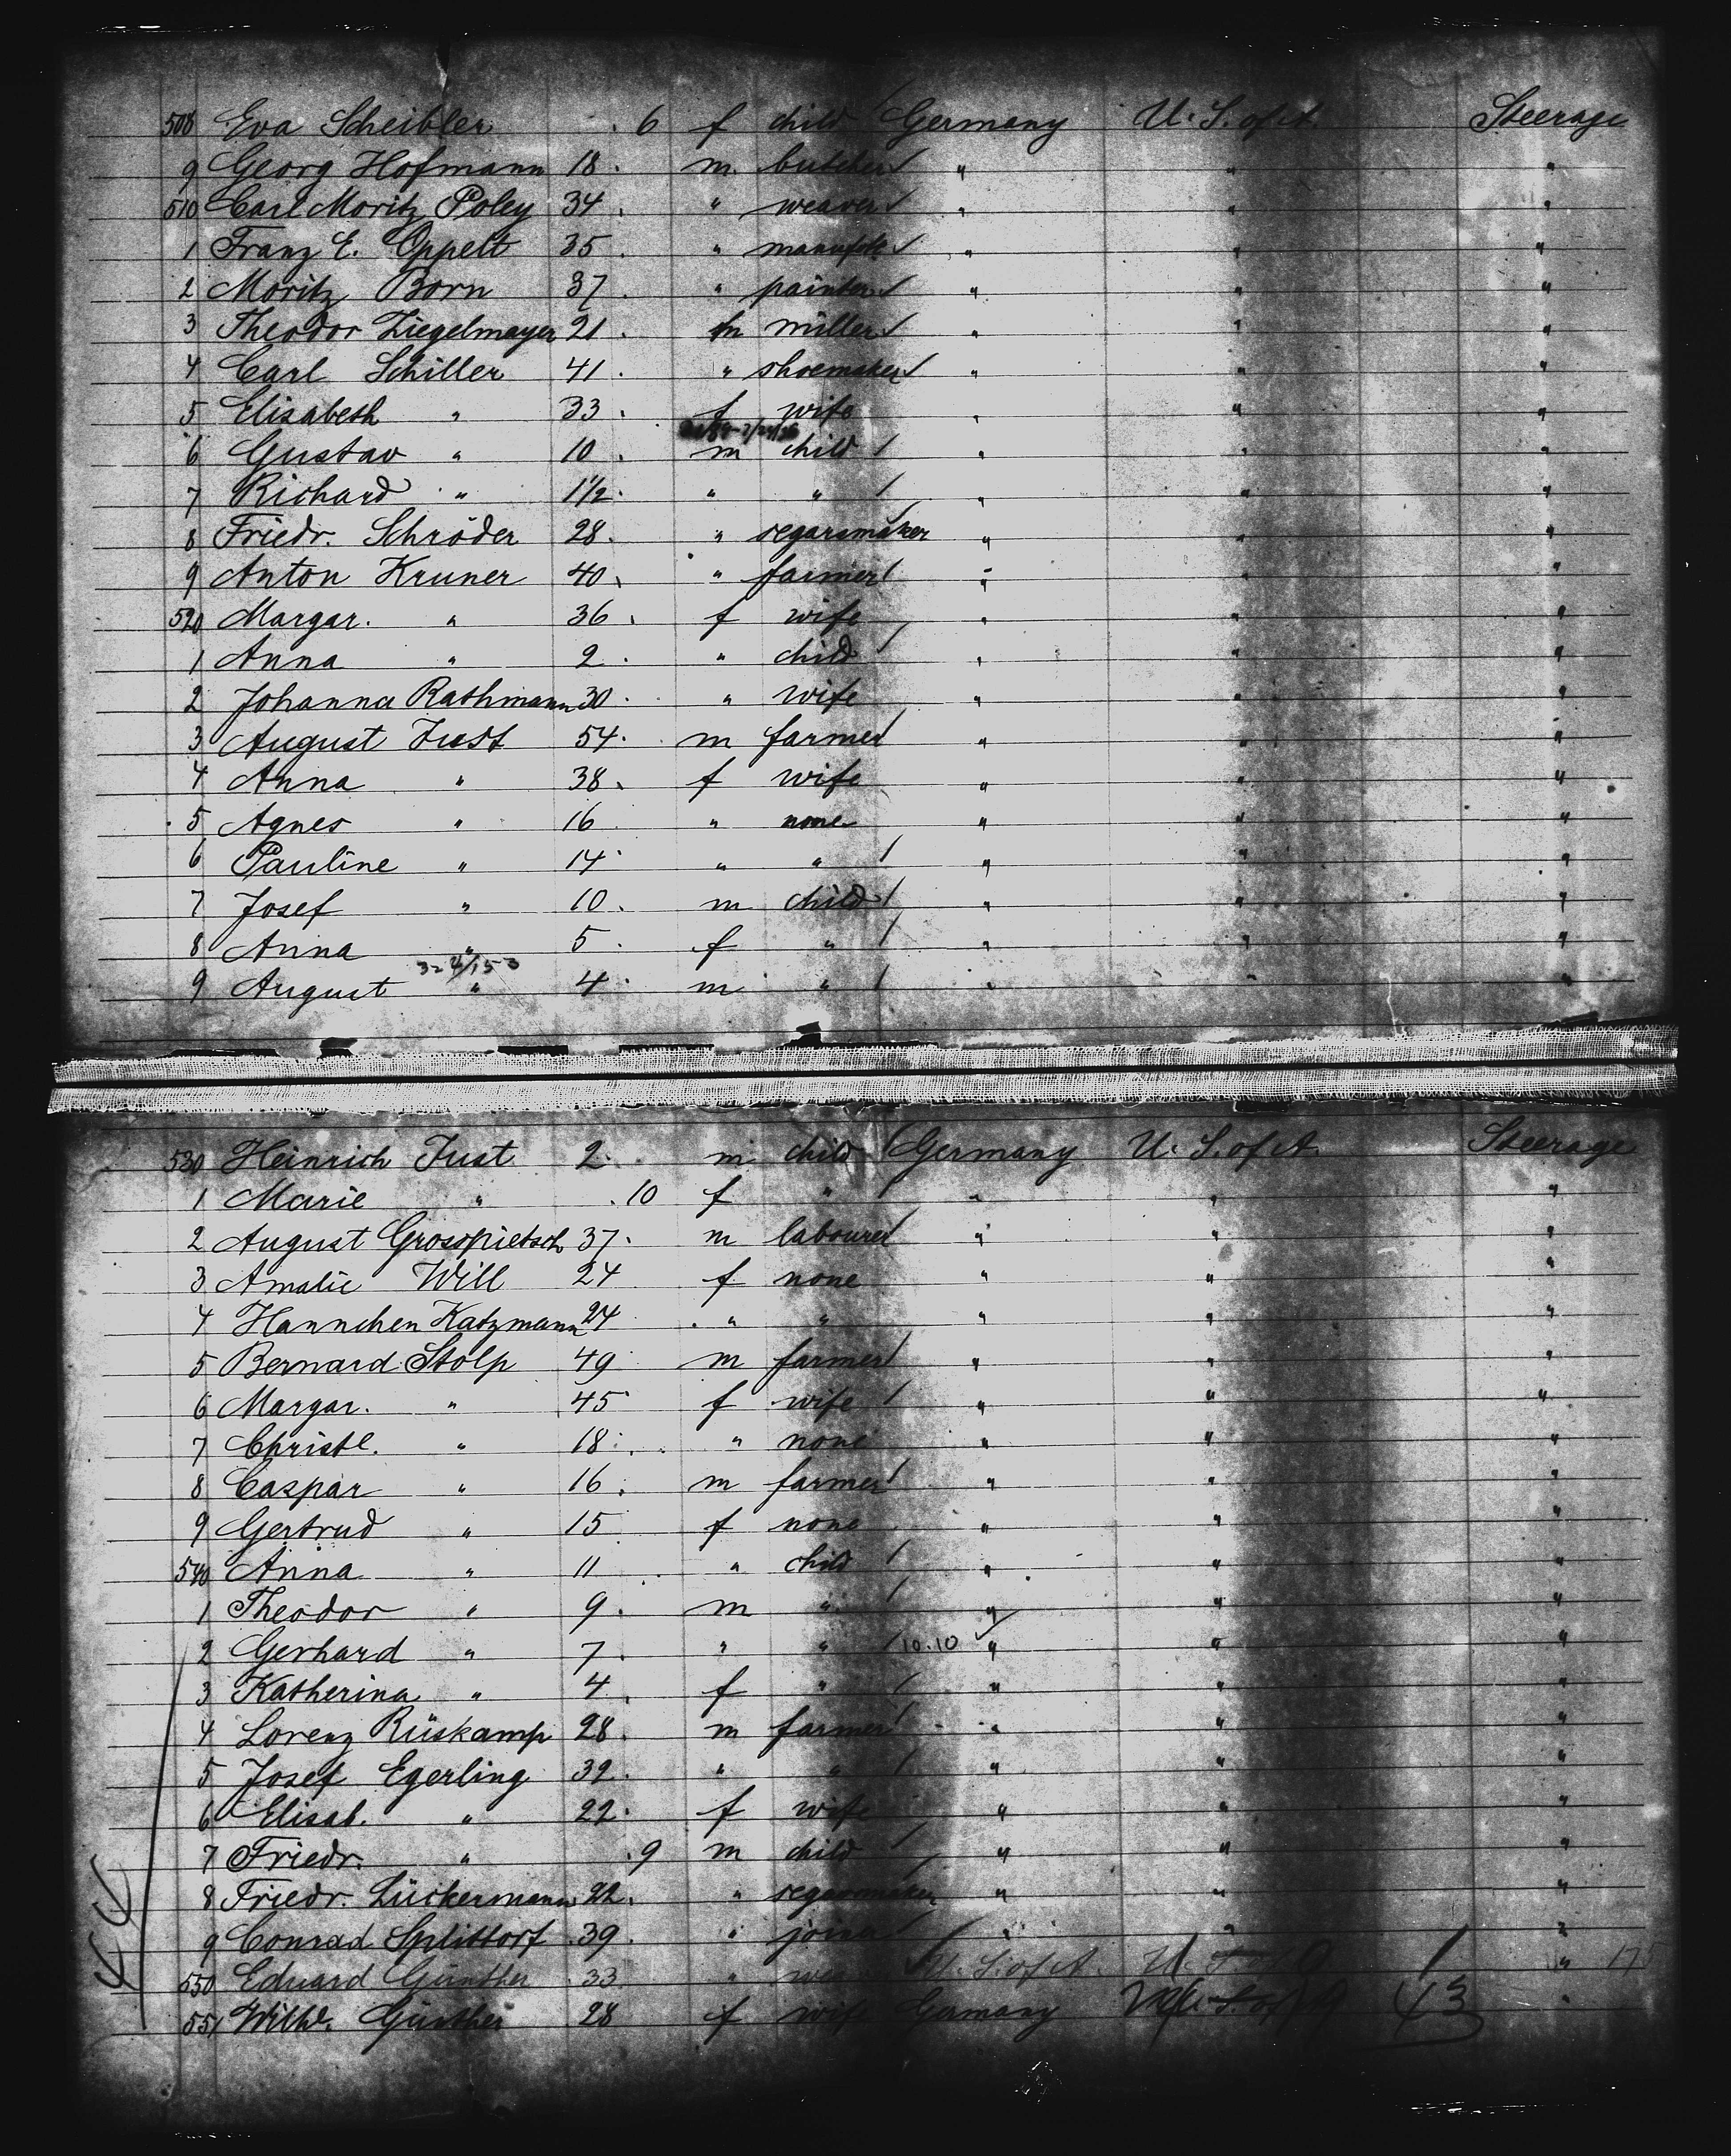 508 Eva Scheibler . 6 f child Germany U. S. of A. Steerage
9 Georg Hofmann 18 . m. butcher " " "
510 Carl Moritz Poley 34 . " weaver " " "
1 Franz E. Oppelt 35 . " " " "
2 Moritz Born 37 . " painter " " "
3 Theodor Ziegelmayer 21 . m miller " " "
4 Carl Schiller 41 . " shoemaker " " "
5 Elisabeth " 33 . f wife " " "
6 Gustav " 10 . m child " " "
7 Richard " 1 1/2 . " " " " "
8 Friedr. Schröder 28 . " segarsmaker " " "
9 Anton Kruner 40 . " farmer " " "
520 Margar. " 36 . f wife " " "
1 Anna " 2 . " child " " "
2 Johanna Rathmann 30 . " wife " " "
3 August Just 54 . m farmer " " "
4 Anna " 38 . f wife " " "
5 Agnes " 16 " none " " "
6 Pauline " 14 " " " " "
7 Josef " 10 . m child " " "
8 Anna " 5 . f " " " "
9 August " 4 . m " " " "
530 Heinrich Just 2 . m child Germany U. S. of A. Steerage
1 Marie " . 10 f " " " "
2 August Grosspietsch 37 . m labourer " " "
3 Amalie Will 24 f none " " "
4 Hannchen Katzmann 24 " " " " "
5 Bernard Stolp 49 m farmer " " "
6 Margar. " 45 f wife " " "
7 Christl. " 18 . " none " " "
8 Caspar " 16 . m farmer " " "
9 Gertrud " 15 f none " " "
540 Anna " 11 " child " " "
1 Theodor " 9 . m " " " "
2 Gerhard " 7 . " " 10.10 " " "
3 Katherina " 4 . f " " " "
4 Lorenz Rüskamp 28 . m farmer " " "
5 Josef Egerling 39 . " " " " "
6 Elisab. " 22 . f wife " " "
7 Friedr. " . 9 m child " " "
8 Friedr. Lückermann 22 . " segarsmaker " " "
9 Conrad Splittorf 39 . " joiner " " "
550 Eduard Günther 33 " U. S. of A. U. S. of "
551 Wilhe. Günther 28 f wife Germany 43 "